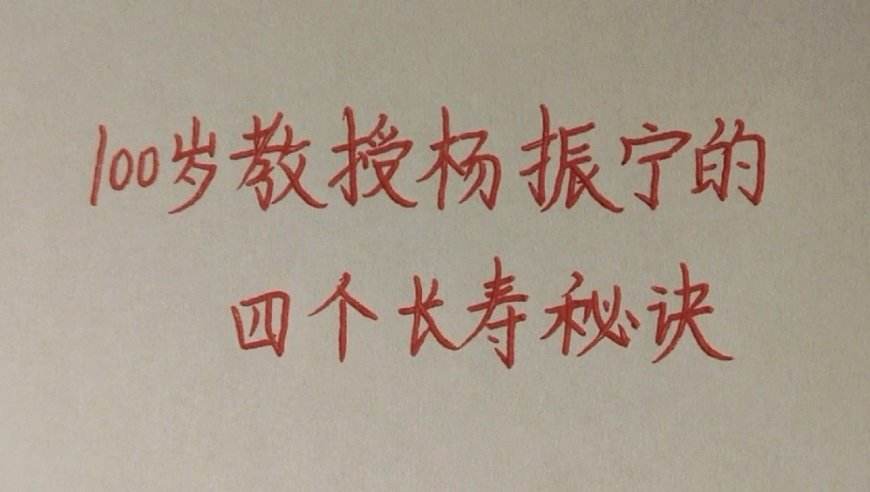 100岁教授杨振宁的
四个长寿秘诀